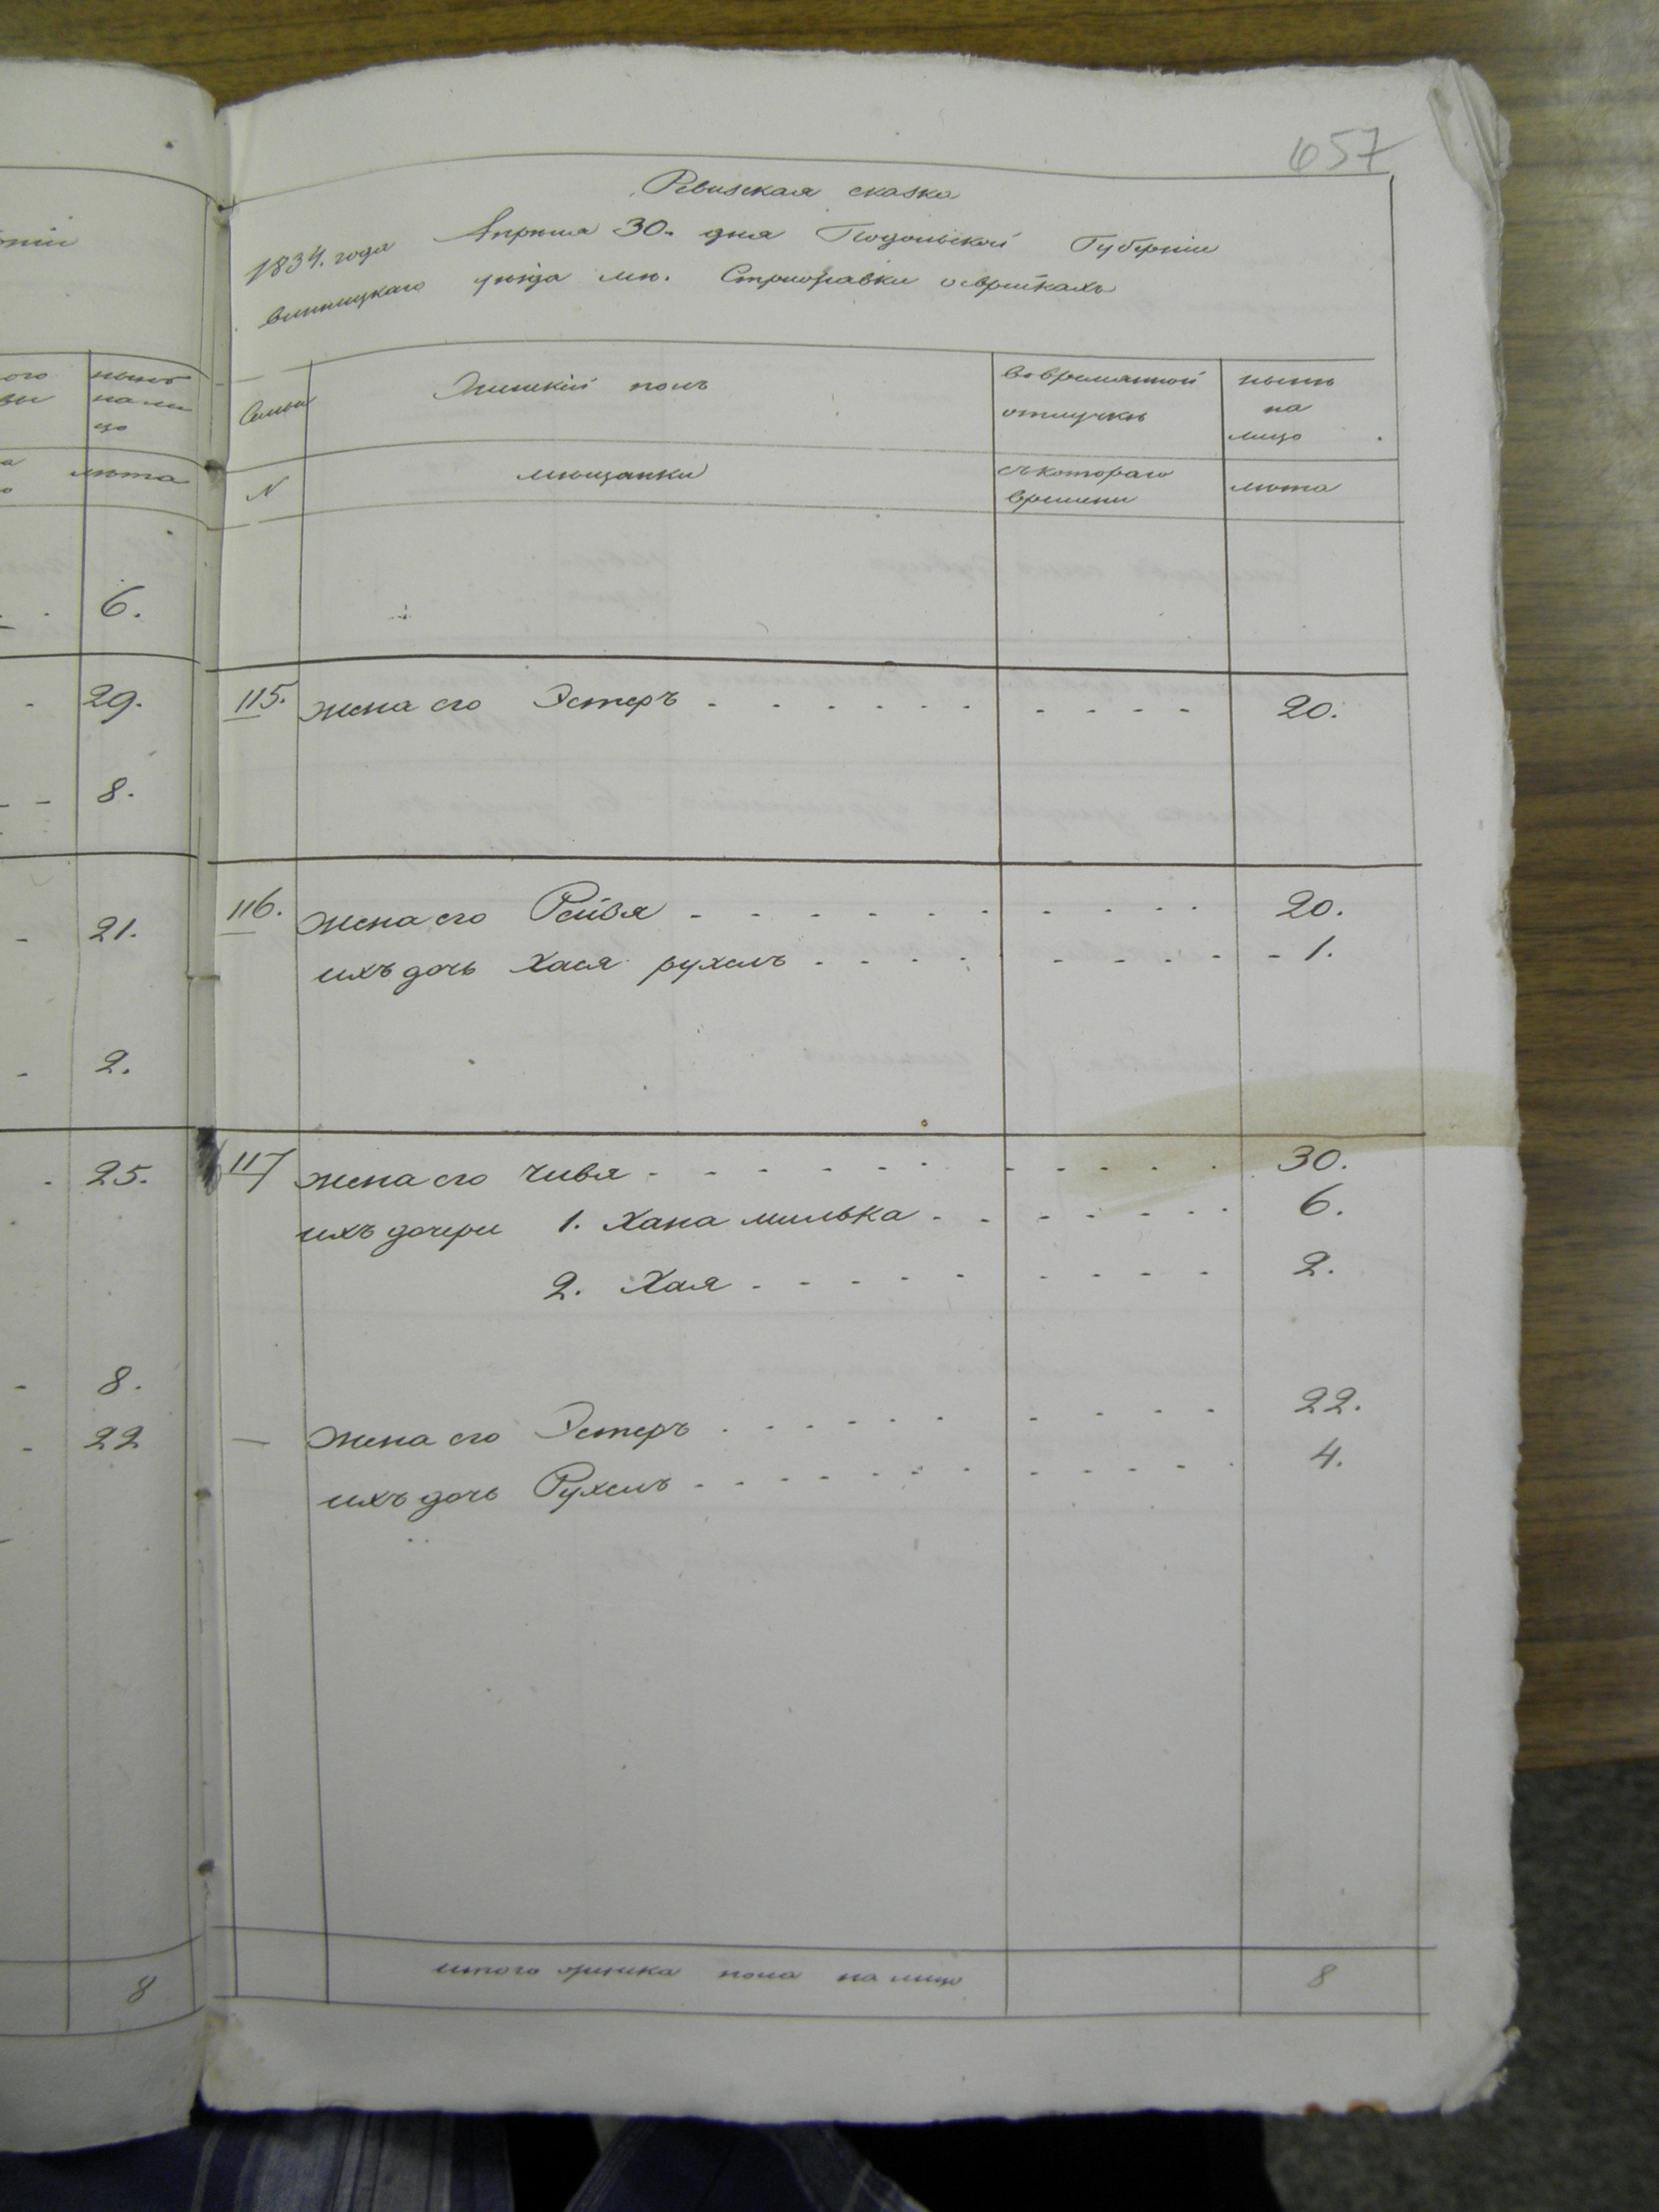 657
Ревизская сказка
1834. года Апреля 30. дня Подольской Губернии
Винницкаго уезда мѣ. Стрижавки о еврейкахъ
ніи
ого
вы
нынѣ
на ли
цо
лѣта
6.
29.
8.
21.
2.
25.
8.
22
8
Семьи
Женский полъ
во временной
отлучкѣ
нынѣ
на
лицо
N
мѣщанки
съ котораго
времени
лѣта
115. жена его Эстеръ - - - - - - - - - - 20.
116. жена его Рейзя - - - - - - - - - - 20.
ихъ дочь Хася рухель - - - - - - - - - 1.
117 жена его Чивя - - - - - - - - - - - 30.
ихъ дочери 1. Хана милька - - - - - - - 6.
2. Хая - - - - - - - - - 2.
— жена его Эстеръ - - - - - - - - - - 22.
ихъ дочь Рухель - - - - - - - - - - - 4.
итого женска пола на лицо 8